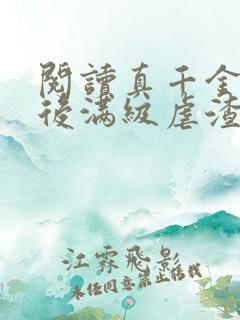 閱讀真千金
後滿級虐渣
江霖飛影
未經同意禁止轉載